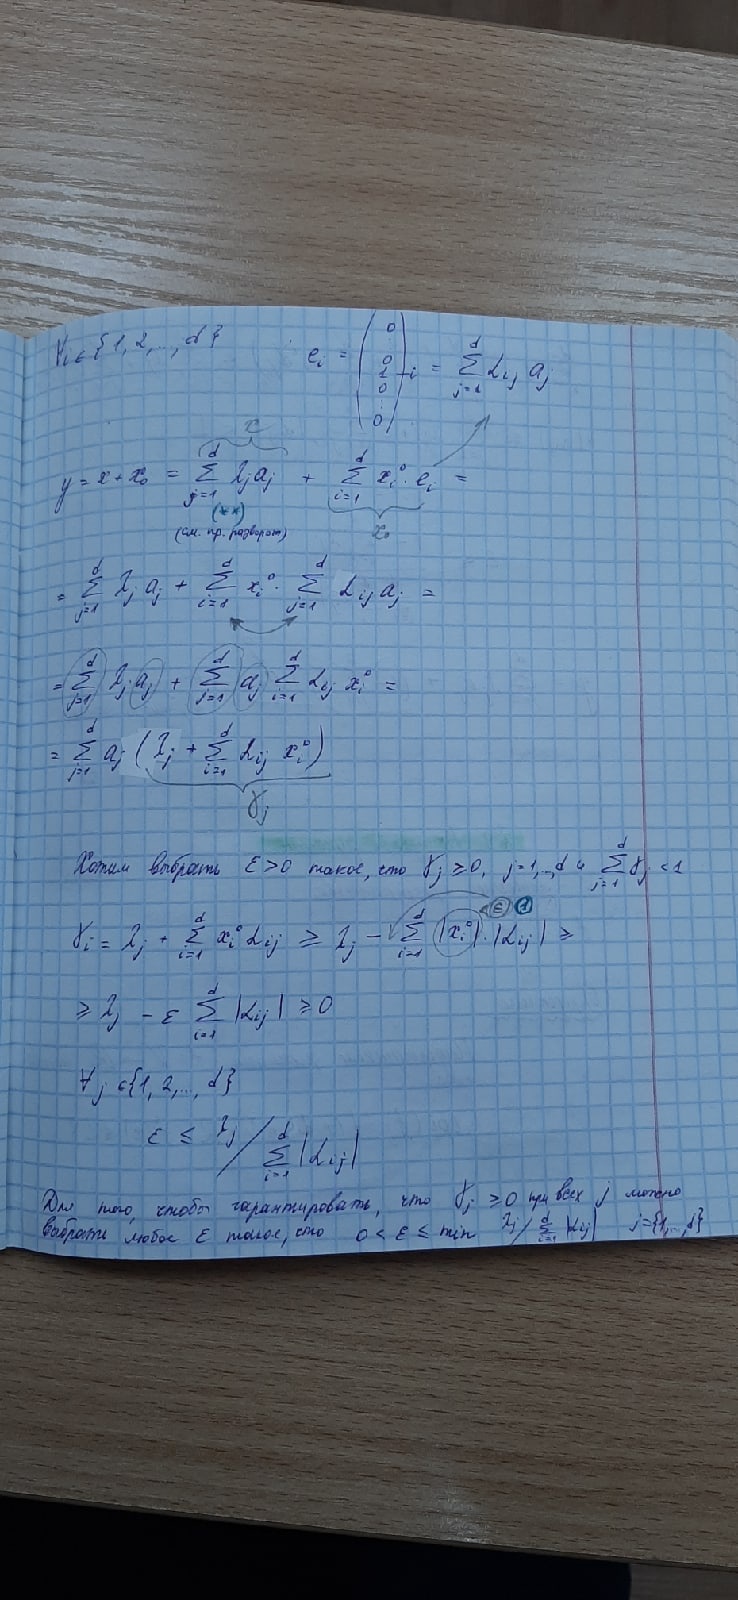 ∀i ∈ {1, 2, ..., d} e_i = (0 ⋮ 0 1 0 ⋮ 0) - i = Σ_{j=1}^{d} α_{ij} a_j
x
y = x + x_0 = Σ_{j=1}^{d} λ_j a_j + Σ_{i=1}^{d} x_i^0 · e_i =
(**) x_0
(см. пр. разворот)
= Σ_{j=1}^{d} λ_j a_j + Σ_{i=1}^{d} x_i^0 · Σ_{j=1}^{d} α_{ij} a_j =
= Σ_{j=1}^{d} λ_j a_j + Σ_{j=1}^{d} a_j Σ_{i=1}^{d} α_{ij} x_i^0 =
= Σ_{j=1}^{d} a_j (λ_j + Σ_{i=1}^{d} α_{ij} x_i^0)
γ_j
Хотим выбрать ε > 0 такое, что γ_j ≥ 0, j=1,...,d и Σ_{j=1}^{d} γ_j < 1
γ_i = λ_j + Σ_{i=1}^{d} x_i^0 α_{ij} ≥ λ_j - Σ_{i=1}^{d} |x_i^0| · |α_{ij}| ≥
< ε 1
≥ λ_j - ε Σ_{i=1}^{d} |α_{ij}| ≥ 0
∀j ∈ {1, 2, ..., d}
ε ≤ λ_j / Σ_{i=1}^{d} |α_{ij}|
Для того, чтобы гарантировать, что γ_j ≥ 0 при всех j можно
выбрать любое ε такое, что 0 < ε ≤ min λ_j / Σ_{i=1}^{d} |α_{ij}| j={1,...,d}